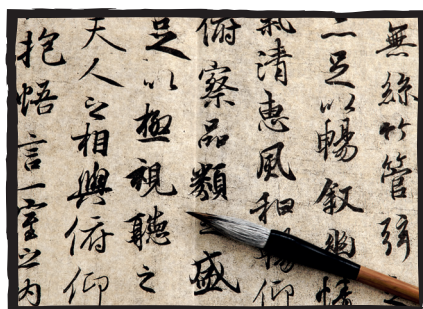 無絲竹管弦之
亦足以暢叙幽情
氣清惠風和暢仰
俯察品類之盛
足以極視聽之
夫人之相與俯仰
抱悟言一室之内